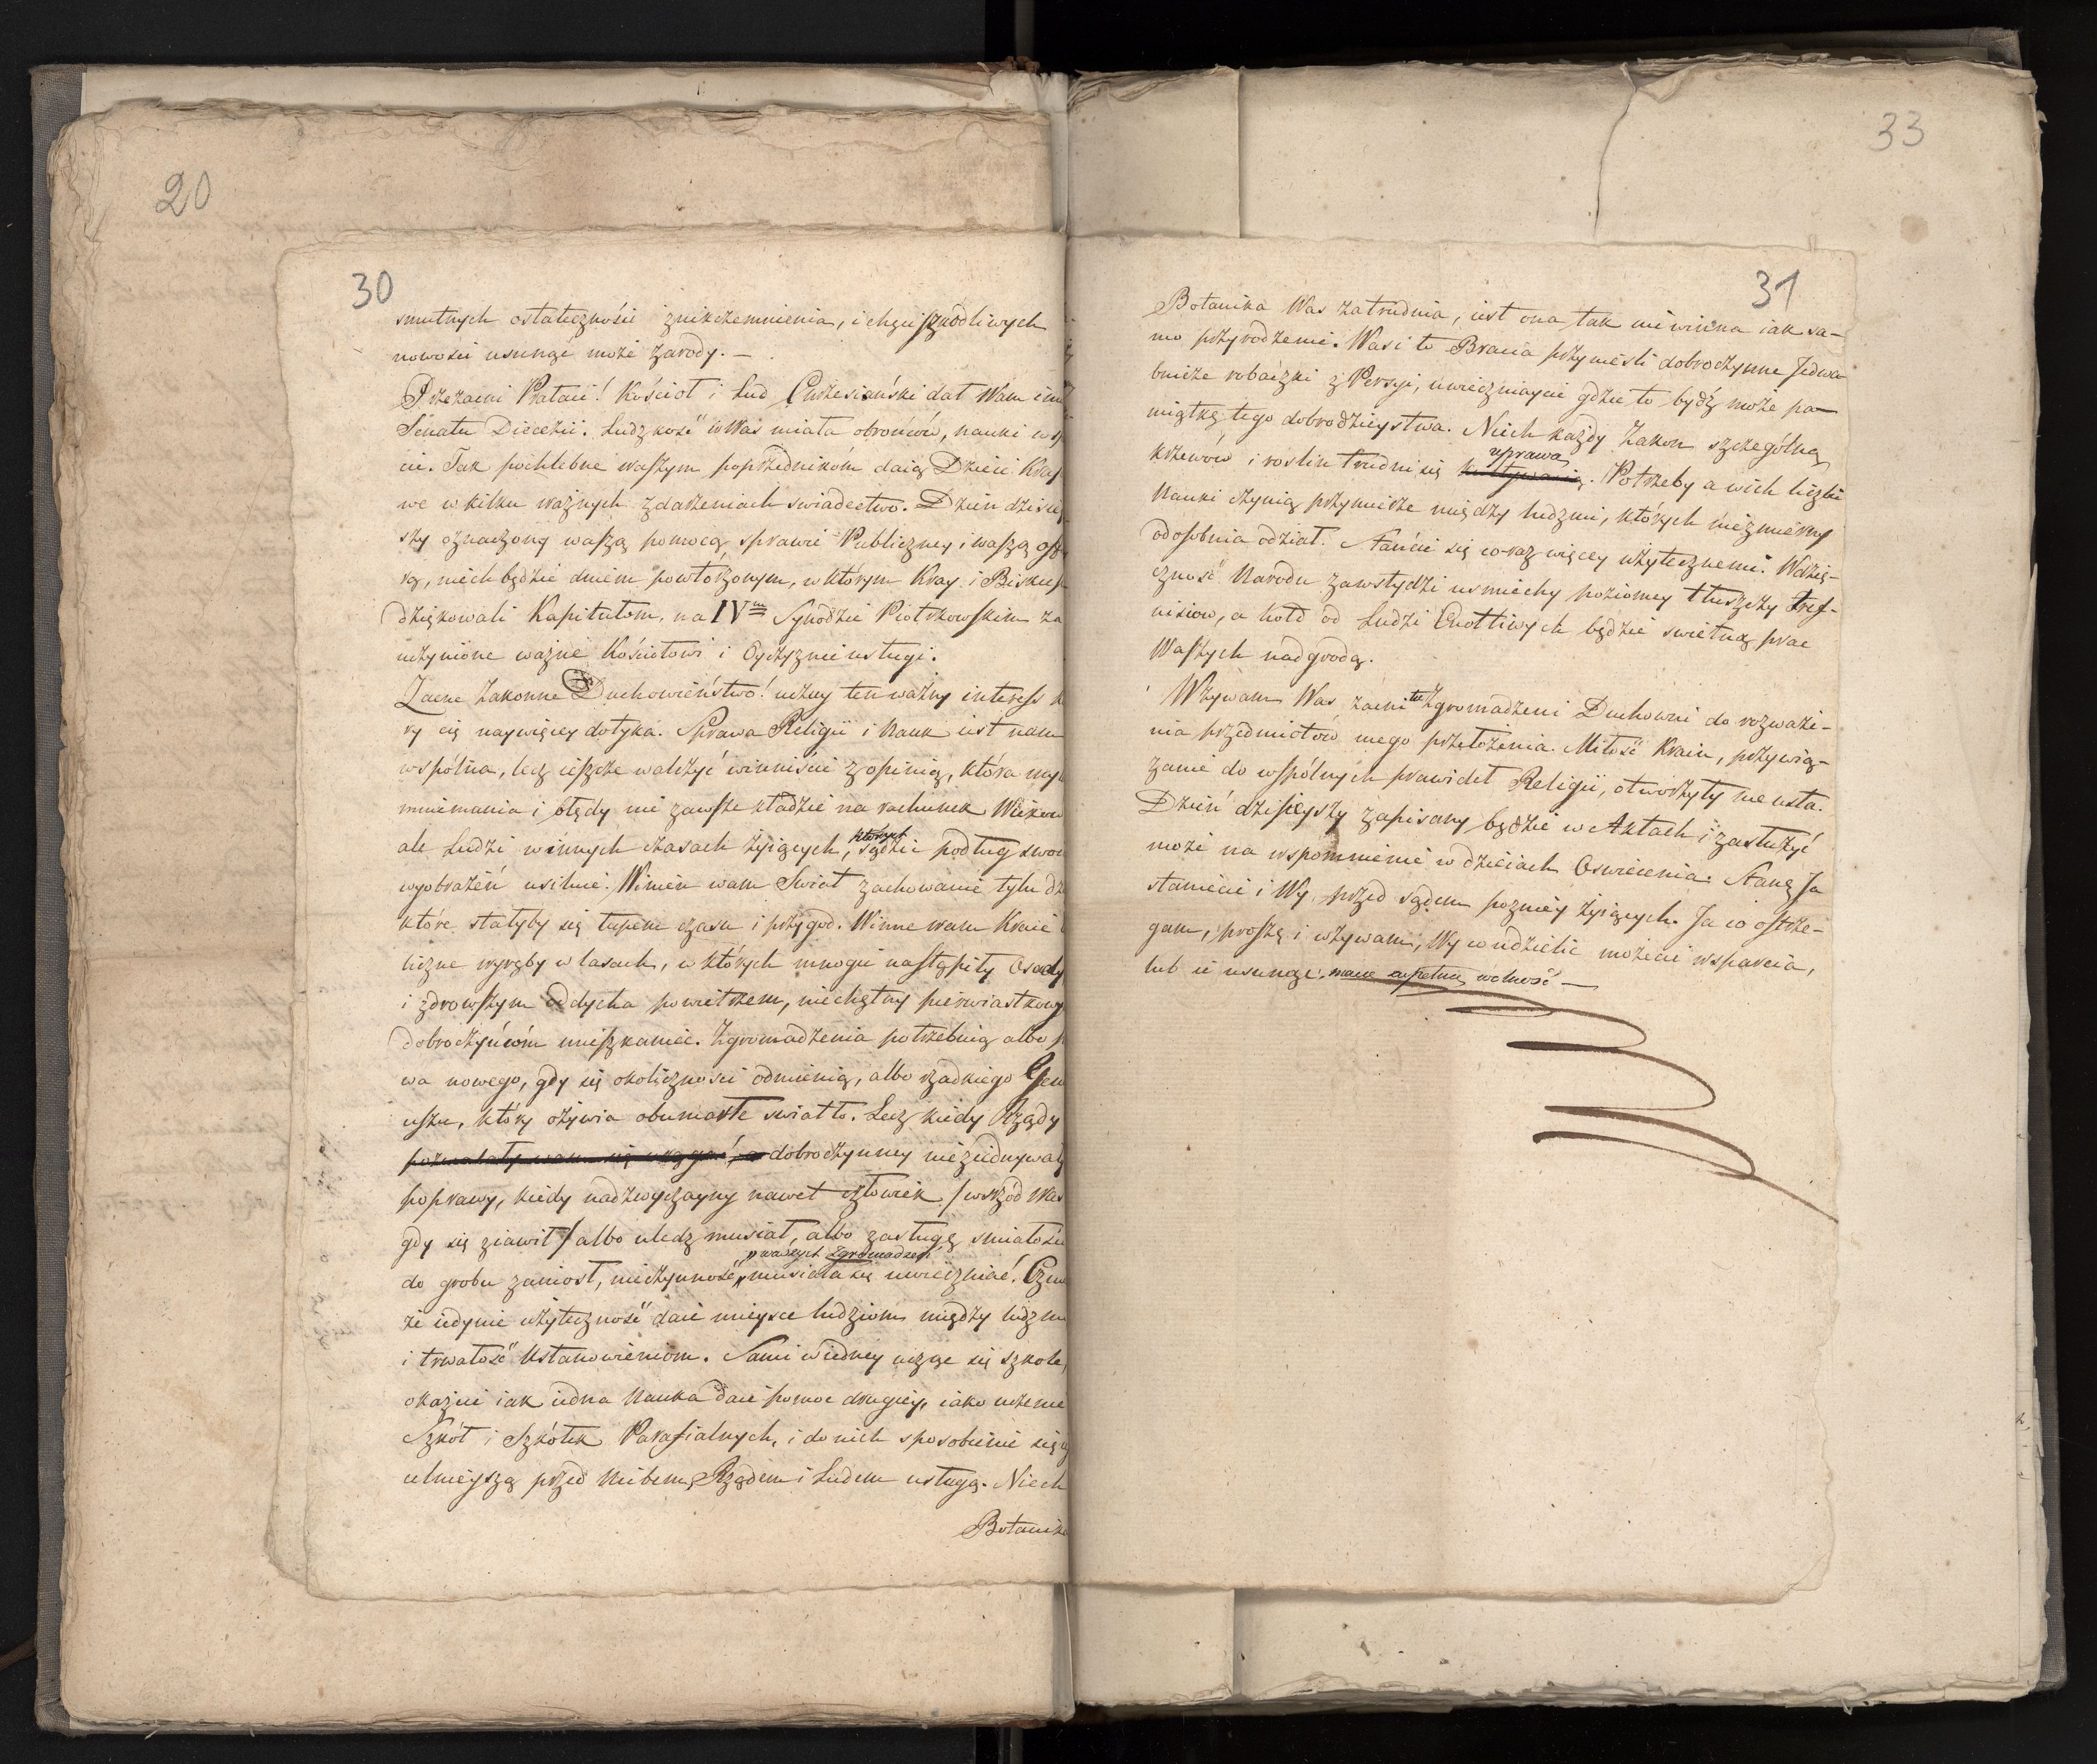 20
30
smutnych ostateczności znikczemnienia, i chęci szkodliwych
nowości usunąć może zarody. —
Przezacni Prałaci! Kościoł i Lud Chrześciański dał Wam imie
Senatu Diecezii. Ludzkość w Was miała obrońców, nauki
cie. Tak pochlebne waszym poprzednikóm daią Dzieie
we w kilku ważnych zdarzeniach swiadectwo. Dzień dzisiey
szy oznaczony waszą pomocą sprawie Publiczney i waszą
rą, niech będzie dniem powtórzonym, w którym Kray i Biskupi
dziękowali Kapitułom, na IVm Synodzie Piotrkowskim za
uczynione ważne Kościołowi i Oyczyznie usługi.
Zacne Zakonne Duchowieństwo! uczuy ten ważny interess
ry cię naywięcey dotyka. Sprawa Religii i Nauk iest nam
wspólna, lecz ieszcze walczyć winniście z opinią, która
mniemania i błędy nie zawsze kładzie na rachunek Wieków
ale Ludzi w innych czasach żyiących, których sądzie podług
wyobrażeń usiłuie. Winien wam Swiat zachowanie tylu
które stałyby się łupem czasu i przygod. Winne wam Kraie
liczne wyręby w lasach, w których mnogie nastąpiły Osady
i zdrowszym oddycha powietrzem, niechętny pierwiastkowym
dobroczyńcóm mieszkaniec. Zgromadzenia potrzebuią albo
wa nowego, gdy się okoliczności odmienią, albo rzadkiego Gen
uszu, który ożywia obumarłe swiatło. Lecz kiedy Rządy
pozwalały wam się wzgar a dobroczynney niezicdnywały
poprawy, kiedy nadzwyczayny nawet człowiek / wsrzód Was
gdy się ziawił / albo uledz musiał, albo zasługę smiałości
„waszych Zgromadzeń
do grobu zaniosł, nieczynność „musiała się uwieczniać.
że iedynie użyteczność daie mieysce ludziom między ludzmi
i trwałość Ustanowieniom. Sami w iedney ucząc się szkole,
okażcie iak iedna Nauka daie pomoc drugiey, iako uczenie
Szkół i Szkółek Parafialnych, i do nich sposobienie się
celnieyszą przed Niebem, Rządem i Ludem usługą. Niech
Botanika
33
31
Botanika Was zatrudnia, iest ona tak niewinna iak sa-
mo przyrodzenie. Wasi to Bracia przynieśli dobroczynne Jedwa-
bnicze robaczki z Persyi, uwieczniaycie gdzie to bydź może pa-
miątkę tego dobrodzieystwa. Niech każdy Zakon szczególną
uprawą
krzewów i roslin trudni się kultywacią. Potrzeby a wich liczbie
Nauki czynią przymierze między ludzmi, których niezmierny
odosobnia odział. Stańcie się coraz więcey użytecznemi. Wdzię-
czność Narodu zawstydzi usmiechy poziomey tłuszczy tref-
nisiow, a hołd od Ludzi Cnotliwych będzie swietną prac
Waszych nadgrodą.
Wzywam Was zacni tu Zgromadzeni Duchowni do rozważe-
nia przedmiotów mego przełożenia. Miłość Kraiu, przywią-
zanie do wspólnych prawideł Religii, otworzyły me usta.
Dzień dzisieyszy zapisany będzie w Aktach i zasłużyć
może na wspomnienie w dzieiach Oswiecenia. Stanę Ja
staniecie i Wy, przed sądem pozniey żyiących. Ja co ostrze-
gam, proszę i wzywam, Wy co udzielić możecie wsparcia,
lub ie usunąć, macie zupełną wolność —